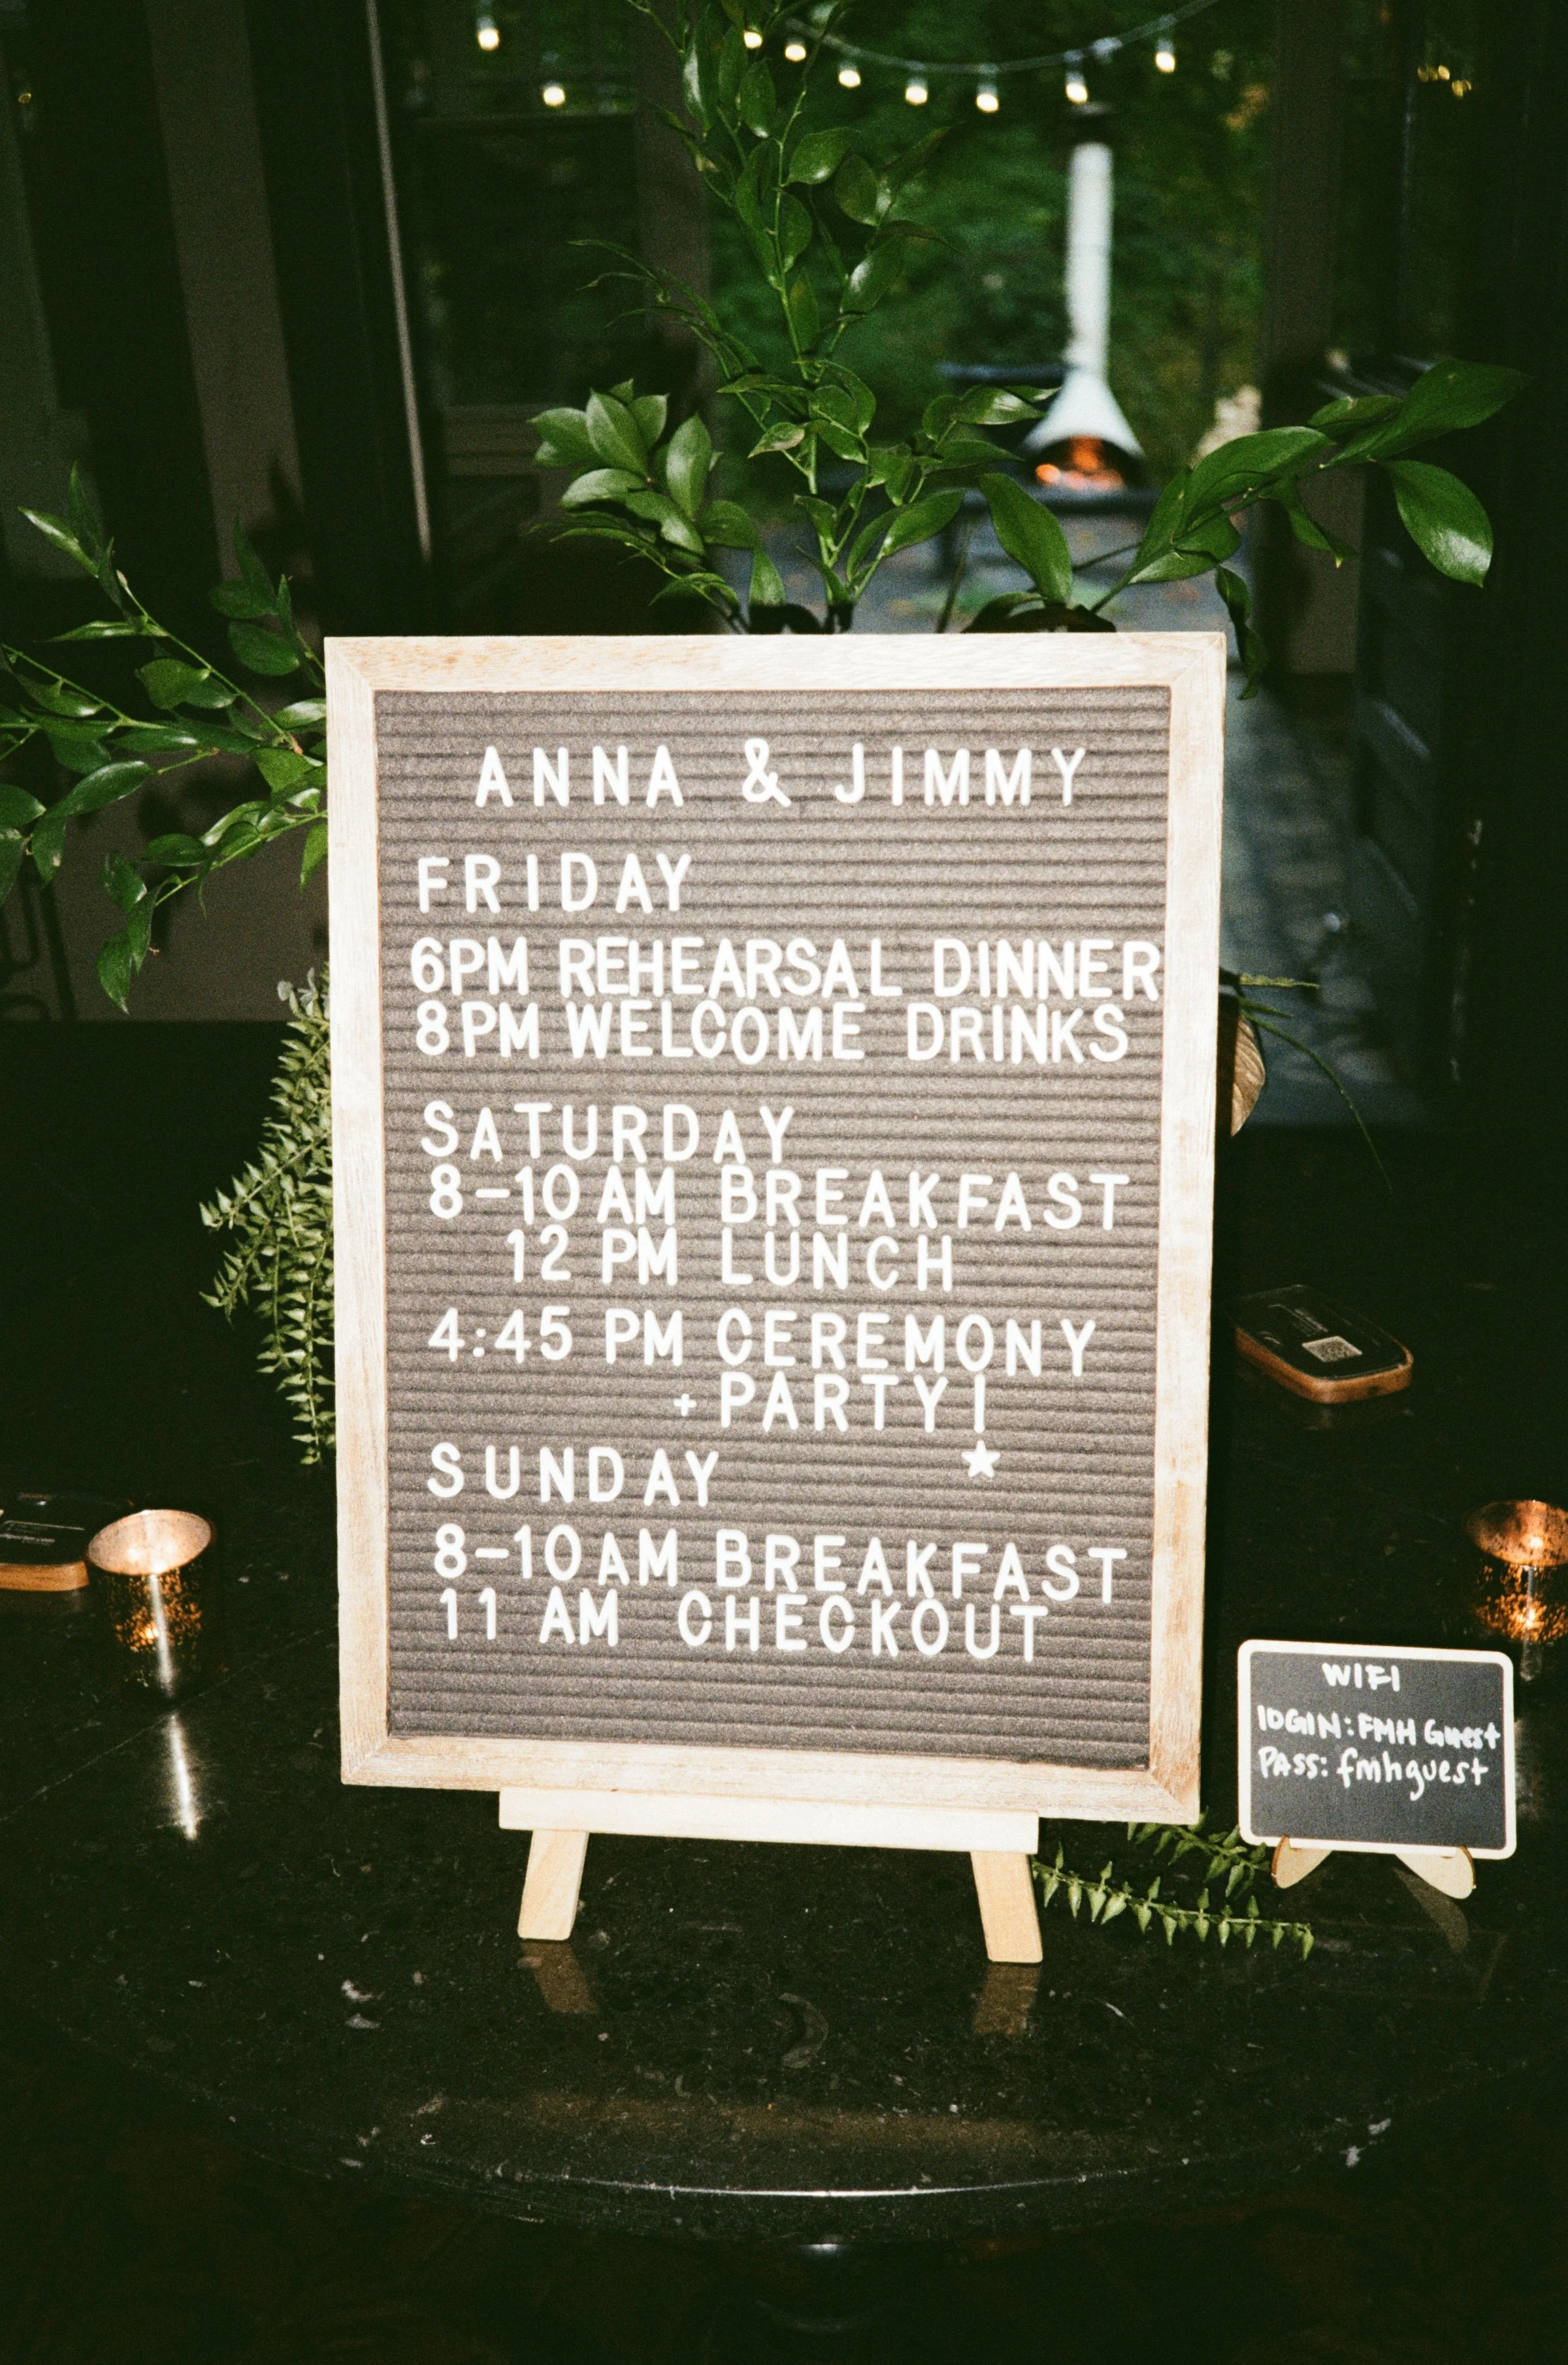 ANNA & JIMMY
FRIDAY
6PM REHEARSAL DINNER
8PM WELCOME DRINKS
SATURDAY
8-10 AM BREAKFAST
12 PM LUNCH
4:45 PM CEREMONY
+ PARTY!
SUNDAY
8-10 AM BREAKFAST
11 AM CHECKOUT
WIFI
LOGIN: FMH Guest
PASS: fmhguest